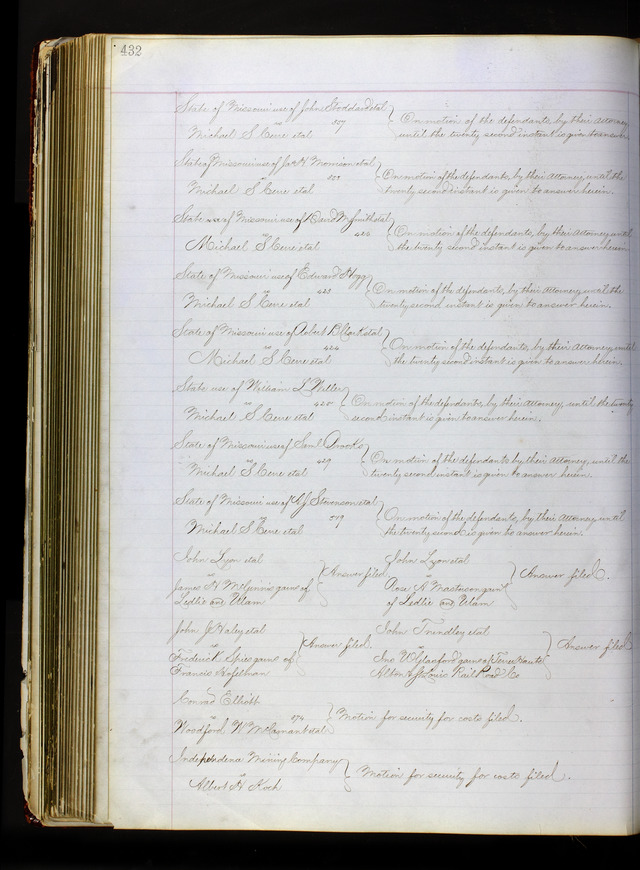 432
State of Missouri use of John Stoddard etal
vs 517
Michael S Cerre etal
On motion of the defendants, by their Attorney
until the twenty second instant is given to answer
State of Missouri use of Jas H Morrison etal
vs
Michael S Cerre etal
On motion of the defendants, by their Attorney, until the
twenty second instant is given to answer herein.
State use of Missouri use of David M Smith etal
vs 422
Michael S Cerre etal
On motion of the defendants, by their Attorney until
the twenty second instant is given to answer herein
State of Missouri use of Edward Hogg
vs 423
Michael S Cerre etal
On motion of the defendants, by their Attorney, until the
twenty second instant is given to answer herein.
State of Missouri use of Robert B Clark etal
vs 424
Michael S Cerre etal
On motion of the defendants, by their Attorney, until
the twenty second instant is given to answer herein.
State use of William L Weller
vs 425
Michael S Cerre etal
On motion of the defendants, by their Attorney, until the twenty
second instant is given to answer herein.
State of Missouri use of Saml Brooks
vs 427
Michael S Cerre etal
On motion of the defendants by their Attorney, until the
twenty second instant is given to answer herein.
State of Missouri use of Stevenson etal
vs 519
Michael S Cerre etal
On motion of the defendants, by their Attorney until
the twenty second is given to answer herein.
John Lyon etal
vs
James H McGinnis garns of
Ledlie and Ulam
Answer filed.
John Lyon etal
vs
Rose A Masterson garns
of Ledlie and Ulam
Answer filed.
John J Haley etal
vs
Frederick Spies garns of
Francis Hofelman
Answer filed.
John Trundley etal
vs
Jno W Glasford garns of Terre Haute
Alton & St Louis Rail Road Co
Answer filed
Conrad Elliott
vs 574
Woodford W McCormant etal
Motion for security for costs filed.
Independence Mining Company
vs
Albert H Koch
Motion for security for costs filed.